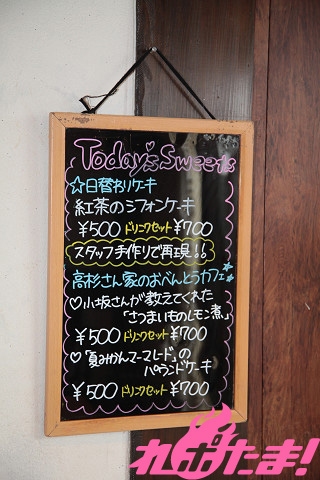 Today's Sweets
☆日替わりケーキ
紅茶のシフォンケーキ
¥500 ドリンクセット¥700
スタッフ手作りで再現!!
高杉さん家のおべんとうカフェ
♡小坂さんが教えてくれた
「さつまいものレモン煮」
¥500 ドリンクセット ¥700
♡「夏みかんマーマレード」の
パウンドケーキ
¥500 ドリンクセット¥700
れポたま!